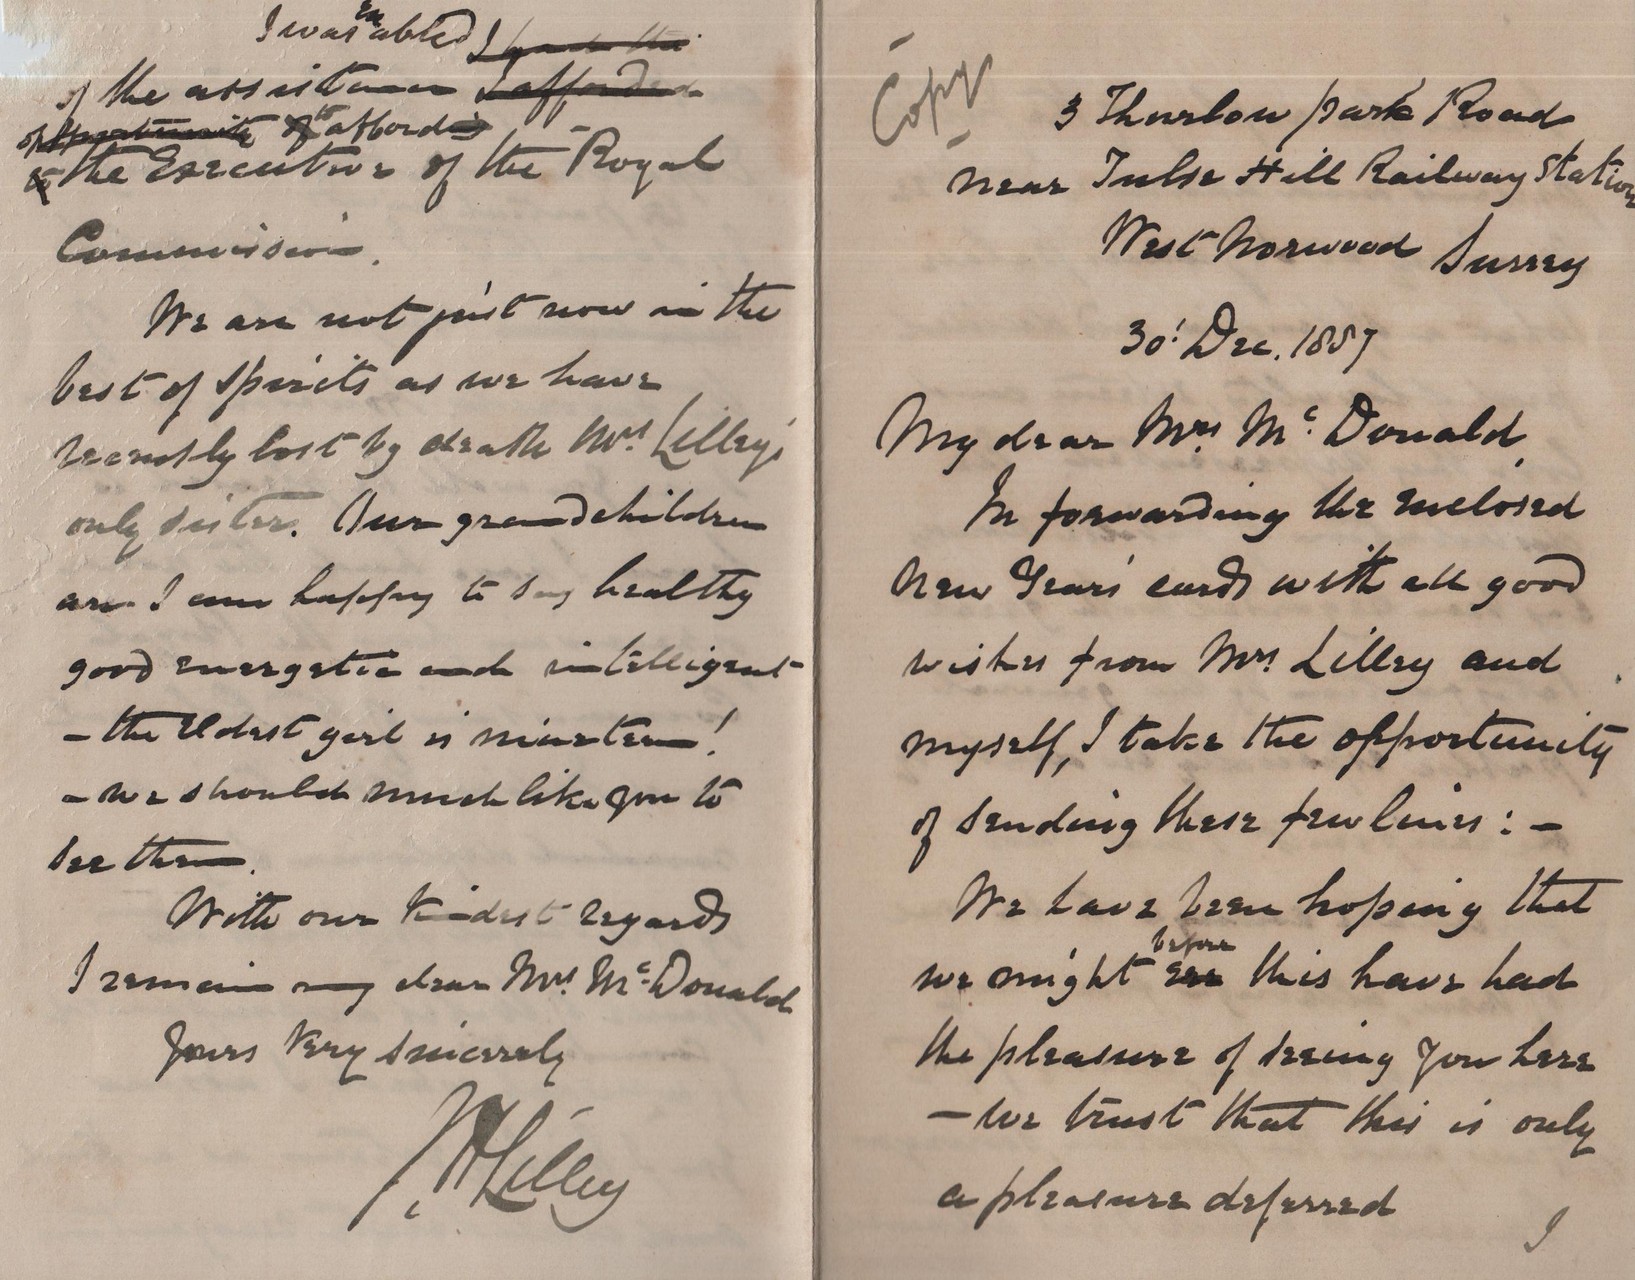 I was enabled I had the
of the assistance I afforded
opportunity of to afforded
to the Executive of the Royal
Commission.
We are not just now in the
best of spirits as we have
recently lost by death Mrs Lilley's
only sister. Our grandchildren
are I am happy to say healthy
good energetic and intelligent
- the eldest girl is nineteen!
- we should much like you to
see them.
With our kindest regards
I remain my dear Mrs McDonald
Yours Very Sincerely
Lilley
Copy
3 Thurlow park Road
near Tulse Hill Railway Station
West Norwood Surrey
30' Dec. 1887
My dear Mrs McDonald,
In forwarding the enclosed
New Years' cards with all good
wishes from Mrs Lilley and
myself, I take the opportunity
of sending these few lines : -
We have been hoping that
before
we might ere this have had
the pleasure of seeing you here
- we trust that this is only
a pleasure deferred
I